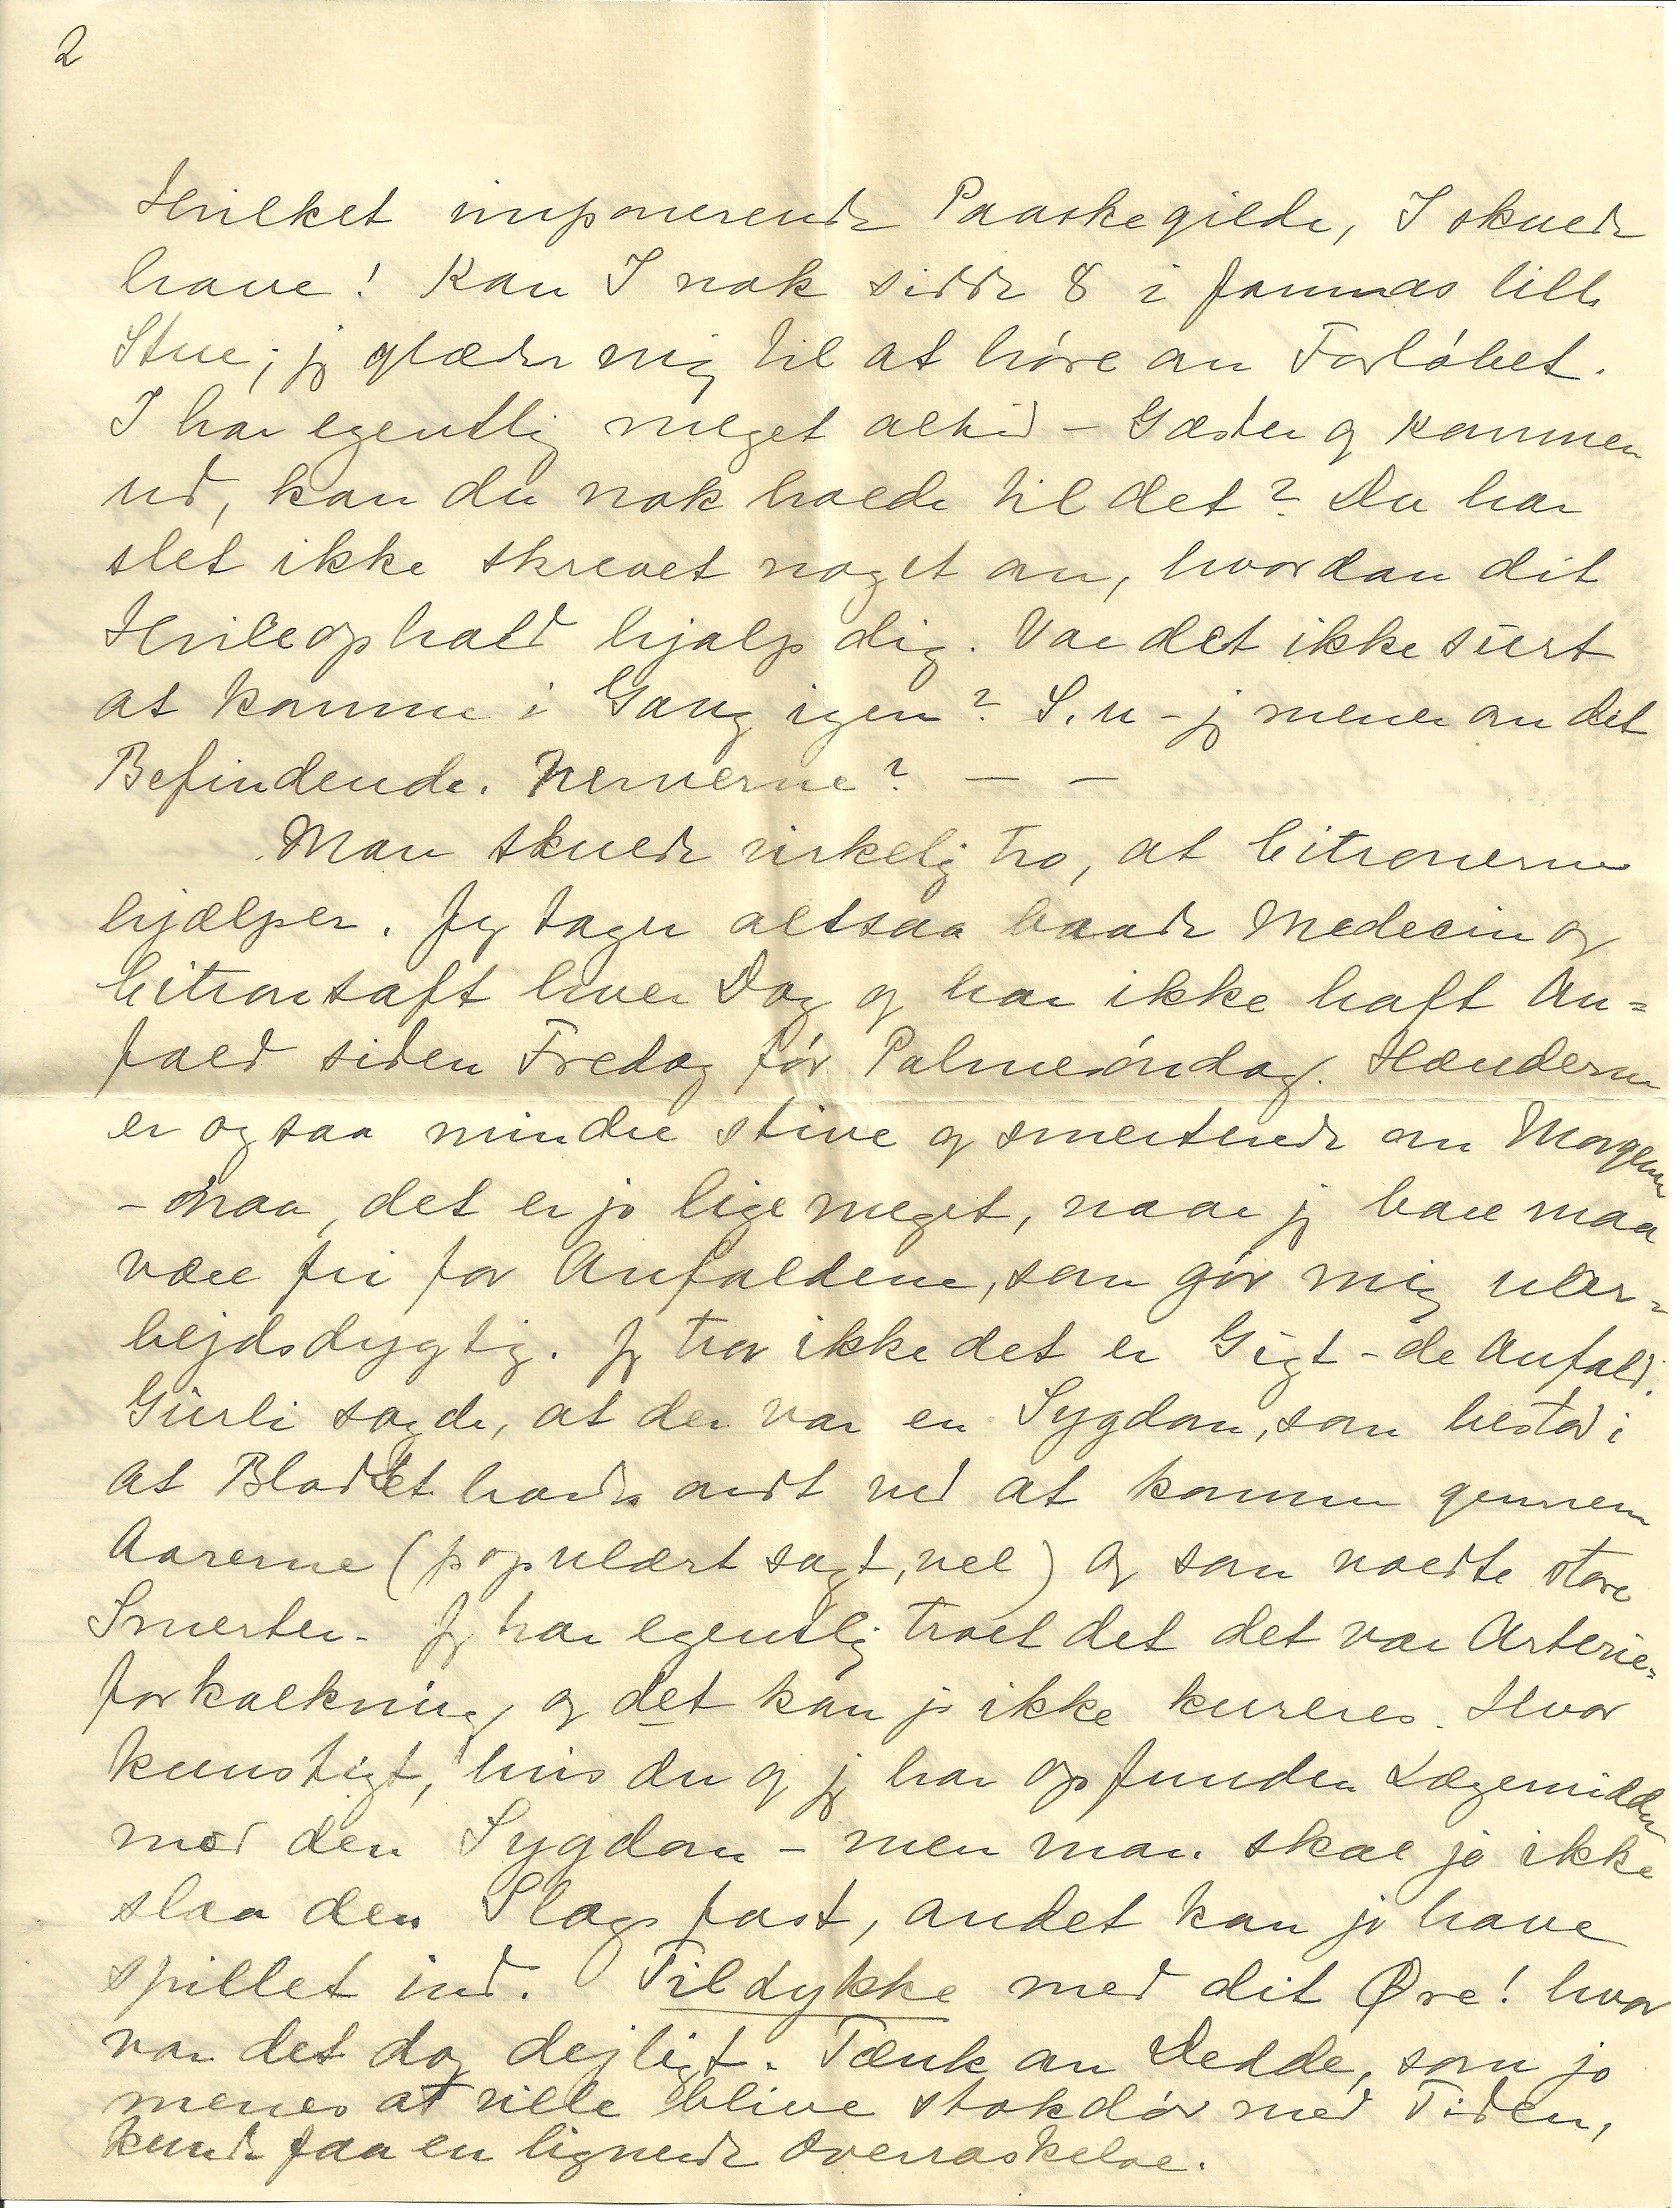 2
Hvilket imponerende Paaskegilde, I skulde
have! Kan I nok sidde 8 i Jannas lille
Stue; jg glæder mig til at høre om Forløbet.
I har egentlig meget altid – Gæster og kommen
ud, kan du nok holde til det? Du har
slet ikke skrevet noget om, hvordan dit
Hvileophold hjalp dig. Var det ikke surt
at komme i Gang igen? S. u – jg mener om dit
Befindende. Nerverne? — —
Man skulde virkelig tro, at Citronerne
hjælper. Jeg tager altsaa baade Medecin og
Citronsaft hver Dag og har ikke haft An=
fald siden Fredag før Palmesøndag. Hænderne
er ogsaa mindre stive og smertende om Morgenen
– naa, det er jo lige meget, naar jg bare maa
være fri for Anfaldene, som gør mig uar=
bejdsdygtig. Jg tror ikke det er Gigt – de Anfald.
Gurli sagde, at der var en Sygdom, som bestod i
at Blodet havde ondt ved at komme gennem
Aarerne (populært sagt, vel) og som voldte store
Smerter – Jg har egentlig troet det det var Arterie=
forkalkning, og det kan jo ikke kureres. Hvor
kunstigt, hvis du og jg har opfunden Lægemidler
mod den Sygdom – men man skal jo ikke
slaa den Slags fast, andet kan jo have
spillet ind. Tillykke med dit Øre! hvor
var det dog dejligt. Tænk om Dedde, som jo
menes at ville blive stokdøv med Tiden,
kunde faa en lignende Overraskelse.